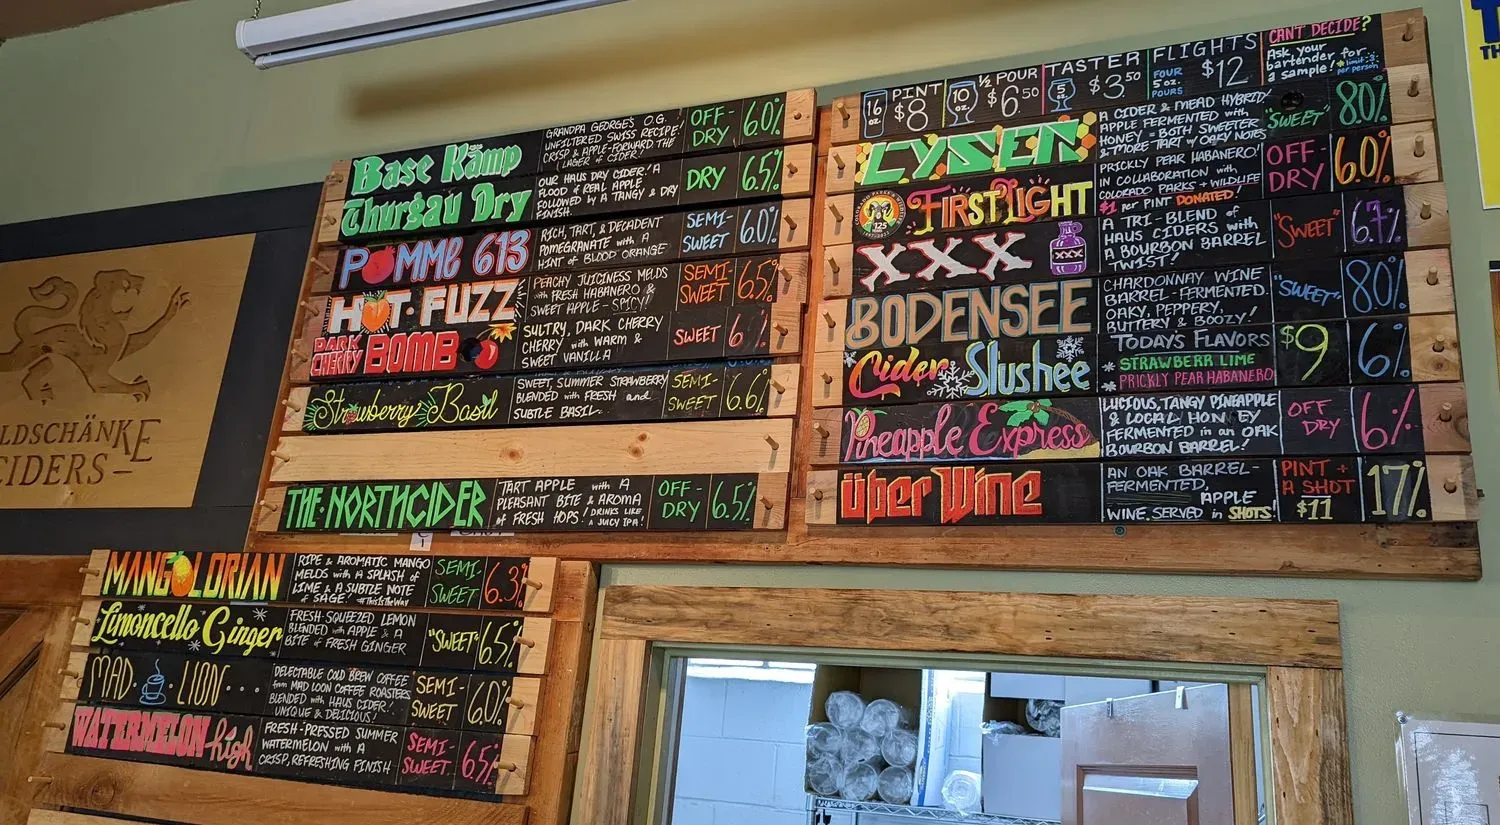 LDSCHÄNKE
CIDERS—
Base Kamp
GRANDPA GEORGE'S O.G.
UNFILTERED SWISS RECIPE!
CRISP & APPLE-FORWARD. THE
LAGER of CIDER!
OFF-
DRY
6.0%
Thurgau Dry
OUR HAUS DRY CIDER! A
FLOOD of REAL APPLE
FOLLOWED by A TANGY & DRY
FINISH.
DRY
6.5%
POMME 613
RICH, TART, & DECADENT
POMEGRANATE with A
HINT of BLOOD ORANGE
SEMI-
SWEET
6.0%
HOT·FUZZ
PEACHY JUICINESS MELDS
with FRESH HABANERO &
SWEET APPLE - SPICY!
SEMI-
SWEET
6.5%
DARK
CHERRY
BOMB
SULTRY, DARK CHERRY
CHERRY with WARM &
SWEET VANILLA
SWEET
6%
Strawberry Basil
SWEET, SUMMER STRAWBERRY
BLENDED with FRESH and
SUBTLE BASIL.
SEMI-
SWEET
6.6%
THE·NORTHCIDER
TART APPLE with A
PLEASANT BITE & AROMA
of FRESH HOPS! DRINKS LIKE
A JUICY IPA!
OFF-
DRY
6.5%
MANGOLORIAN
RIPE & AROMATIC MANGO
MELDS with A SPLASH of
LIME & A SUBTLE NOTE
of SAGE! #ThisIsTheWay
SEMI-
SWEET
6.3%
Limoncello Ginger
FRESH-SQUEEZED LEMON
BLENDED with APPLE & A
BITE of FRESH GINGER
"SWEET"
6.5%
MAD·LION...
DELECTABLE COLD BREW COFFEE
from MAD LOON COFFEE ROASTERS
BLENDED with HAUS CIDER.
UNIQUE & DELICIOUS!
SEMI-
SWEET
6.0%
WATERMELON high
FRESH-PRESSED SUMMER
WATERMELON with A
CRISP, REFRESHING FINISH
SEMI-
SWEET
6.5%
16
oz.
PINT
$8
10
oz.
½ POUR
$6.50
5
oz
TASTER
$3.50
FLIGHTS
FOUR
5 oz.
POURS
$12
CAN'T DECIDE?
Ask your
bartender for
a sample! *limit 3
per person
LYSEN
A CIDER & MEAD HYBRID!
APPLE FERMENTED with
HONEY = BOTH SWEETER
& MORE TART w/ OAKY NOTES
"SWEET"
8.0%
FIRST LIGHT
COLORADO PARKS & WILDLIFE
125
PRICKLY PEAR HABANERO!
IN COLLABORATION with
COLORADO PARKS + WILDLIFE
$1 PER PINT DONATED!
OFF-
DRY
6.0%
XXX
XXX
A TRI-BLEND of
HAUS CIDERS with
A BOURBON BARREL
TWIST!
"SWEET"
6.7%
BODENSEE
CHARDONNAY WINE
BARREL-FERMENTED.
OAKY, PEPPERY,
BUTTERY & BOOZY!
"SWEET"
8.0%
Cider Slushee
TODAYS FLAVORS
* STRAWBERR LIME
* PRICKLY PEAR HABANERO
$9
6%
Pineapple Express
LUCIOUS, TANGY PINEAPPLE
& LOCAL HON EY
FERMENTED in an OAK
BOURBON BARREL!
OFF
DRY
6%
über Wine
AN OAK BARREL-
FERMENTED,
APPLE
WINE. SERVED in SHOTS!
PINT +
A SHOT
$11
17%